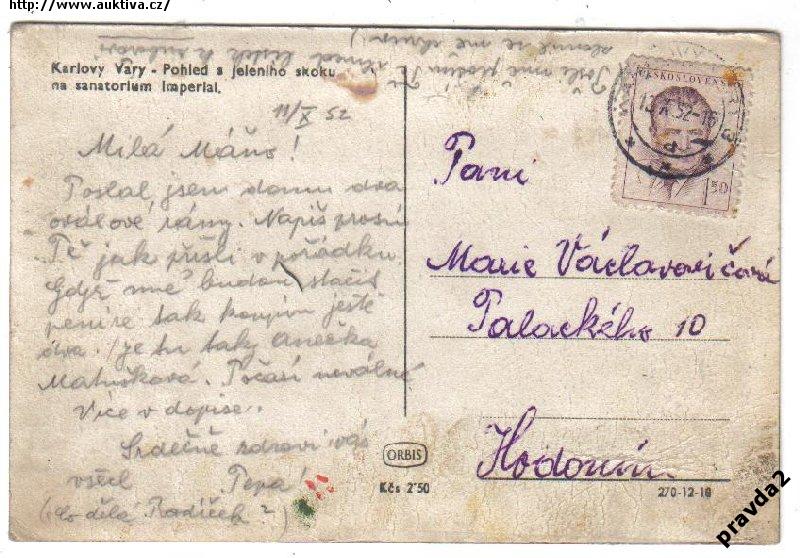 http://www.auktiva.cz/
Karlovy Vary - Pohled s jeleního skoku
na sanatorium Imperial.
11/X 52
Milá Máňo!
Poslal jsem domu dva
oválové rámy. Napiš prosím
Tě jak přišli v pořádku.
Když mně budou stačit
peníze tak koupím ještě
dva. Je tu taky Anečka
Matušková. Počasí neválné
Více v dopise.
Srdečně zdraví vás
všecl Pepa!
(Co dělá Radíček?)
ČESKOSLOVENSKO
1,50
Paní
Marie Václavovičová
Palackého 10
Hodonín
ORBIS
Kčs 2'50
270-12-18
pravda2